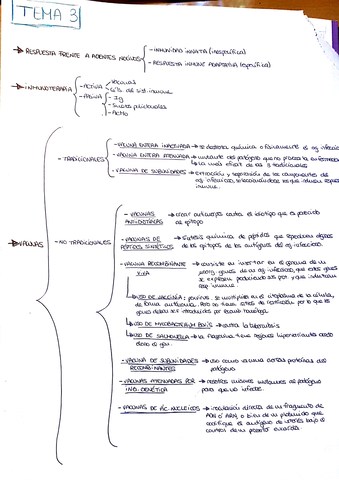 TEMA 3
→ RESPUESTA FRENTE A AGENTES NOCIVOS
- INMUNIDAD INNATA (inespecífica)
- RESPUESTA INMUNE ADAPTATIVA (específica)
→ INMUNOTERAPIA
- ACTIVA
- Vacunas
- del sist. inmune
- PASIVA
- Ig
- Sueros policlonales
- AcMo
→ VACUNAS
- TRADICIONALES
- VACUNA ENTERA INACTIVADA → se destruye química o físicamente el ag. infeccioso
- VACUNA ENTERA ATENUADA → mutante del patógeno que no provoca la enfermedad
↳ la más eficaz de las 3 tradicionales
- VACUNA DE SUBUNIDADES → extracción y separación de los componentes del
ag. infeccioso, seleccionándose los que inducen resp.
inmune.
- NO TRADICIONALES
- VACUNAS
ANTIIDIOTIPICAS → crear anticuerpos contra el idiotipo que es parecido
al epítopo
- VACUNAS DE
PÉPTIDOS SINTÉTICOS → síntesis química de péptidos que reproducen algunos
de los epítopos de los antígenos del ag. infeccioso.
- VACUNA RECOMBINANTE
VIVA → consiste en insertar en el genoma de un
microorg. genes de un ag. infeccioso, que estos genes
se expresen, produciendo sus prot. y que induzcan
resp. inmune
↳ USO DE VACCINIA: poxvirus, se multiplica en el citoplasma de la célula,
de forma autónoma. Pero no tiene sitios de restricción por lo que los
genes deben ser introducidos por
↳ USO DE MYCOBACTERIUM BOVIS → contra la tuberculosis
↳ USO DE SALMONELLA → la flagelina tiene regiones hipervariables donde
el gen.
- VACUNA DE SUBUNIDADES
RECOMBINANTES → usa como vacuna ciertas proteínas del
patógeno
- VACUNAS ATENUADAS POR
ING. GENÉTICA → nosotros mismos mutamos al patógeno
para que no infecte.
- VACUNAS DE ÁC. NUCLEICOS → inoculación directa de un fragmento de
ADN o ARN, o bien de un plásmido que
codifique el antígeno de interés bajo el
control de un promotor eucariota.